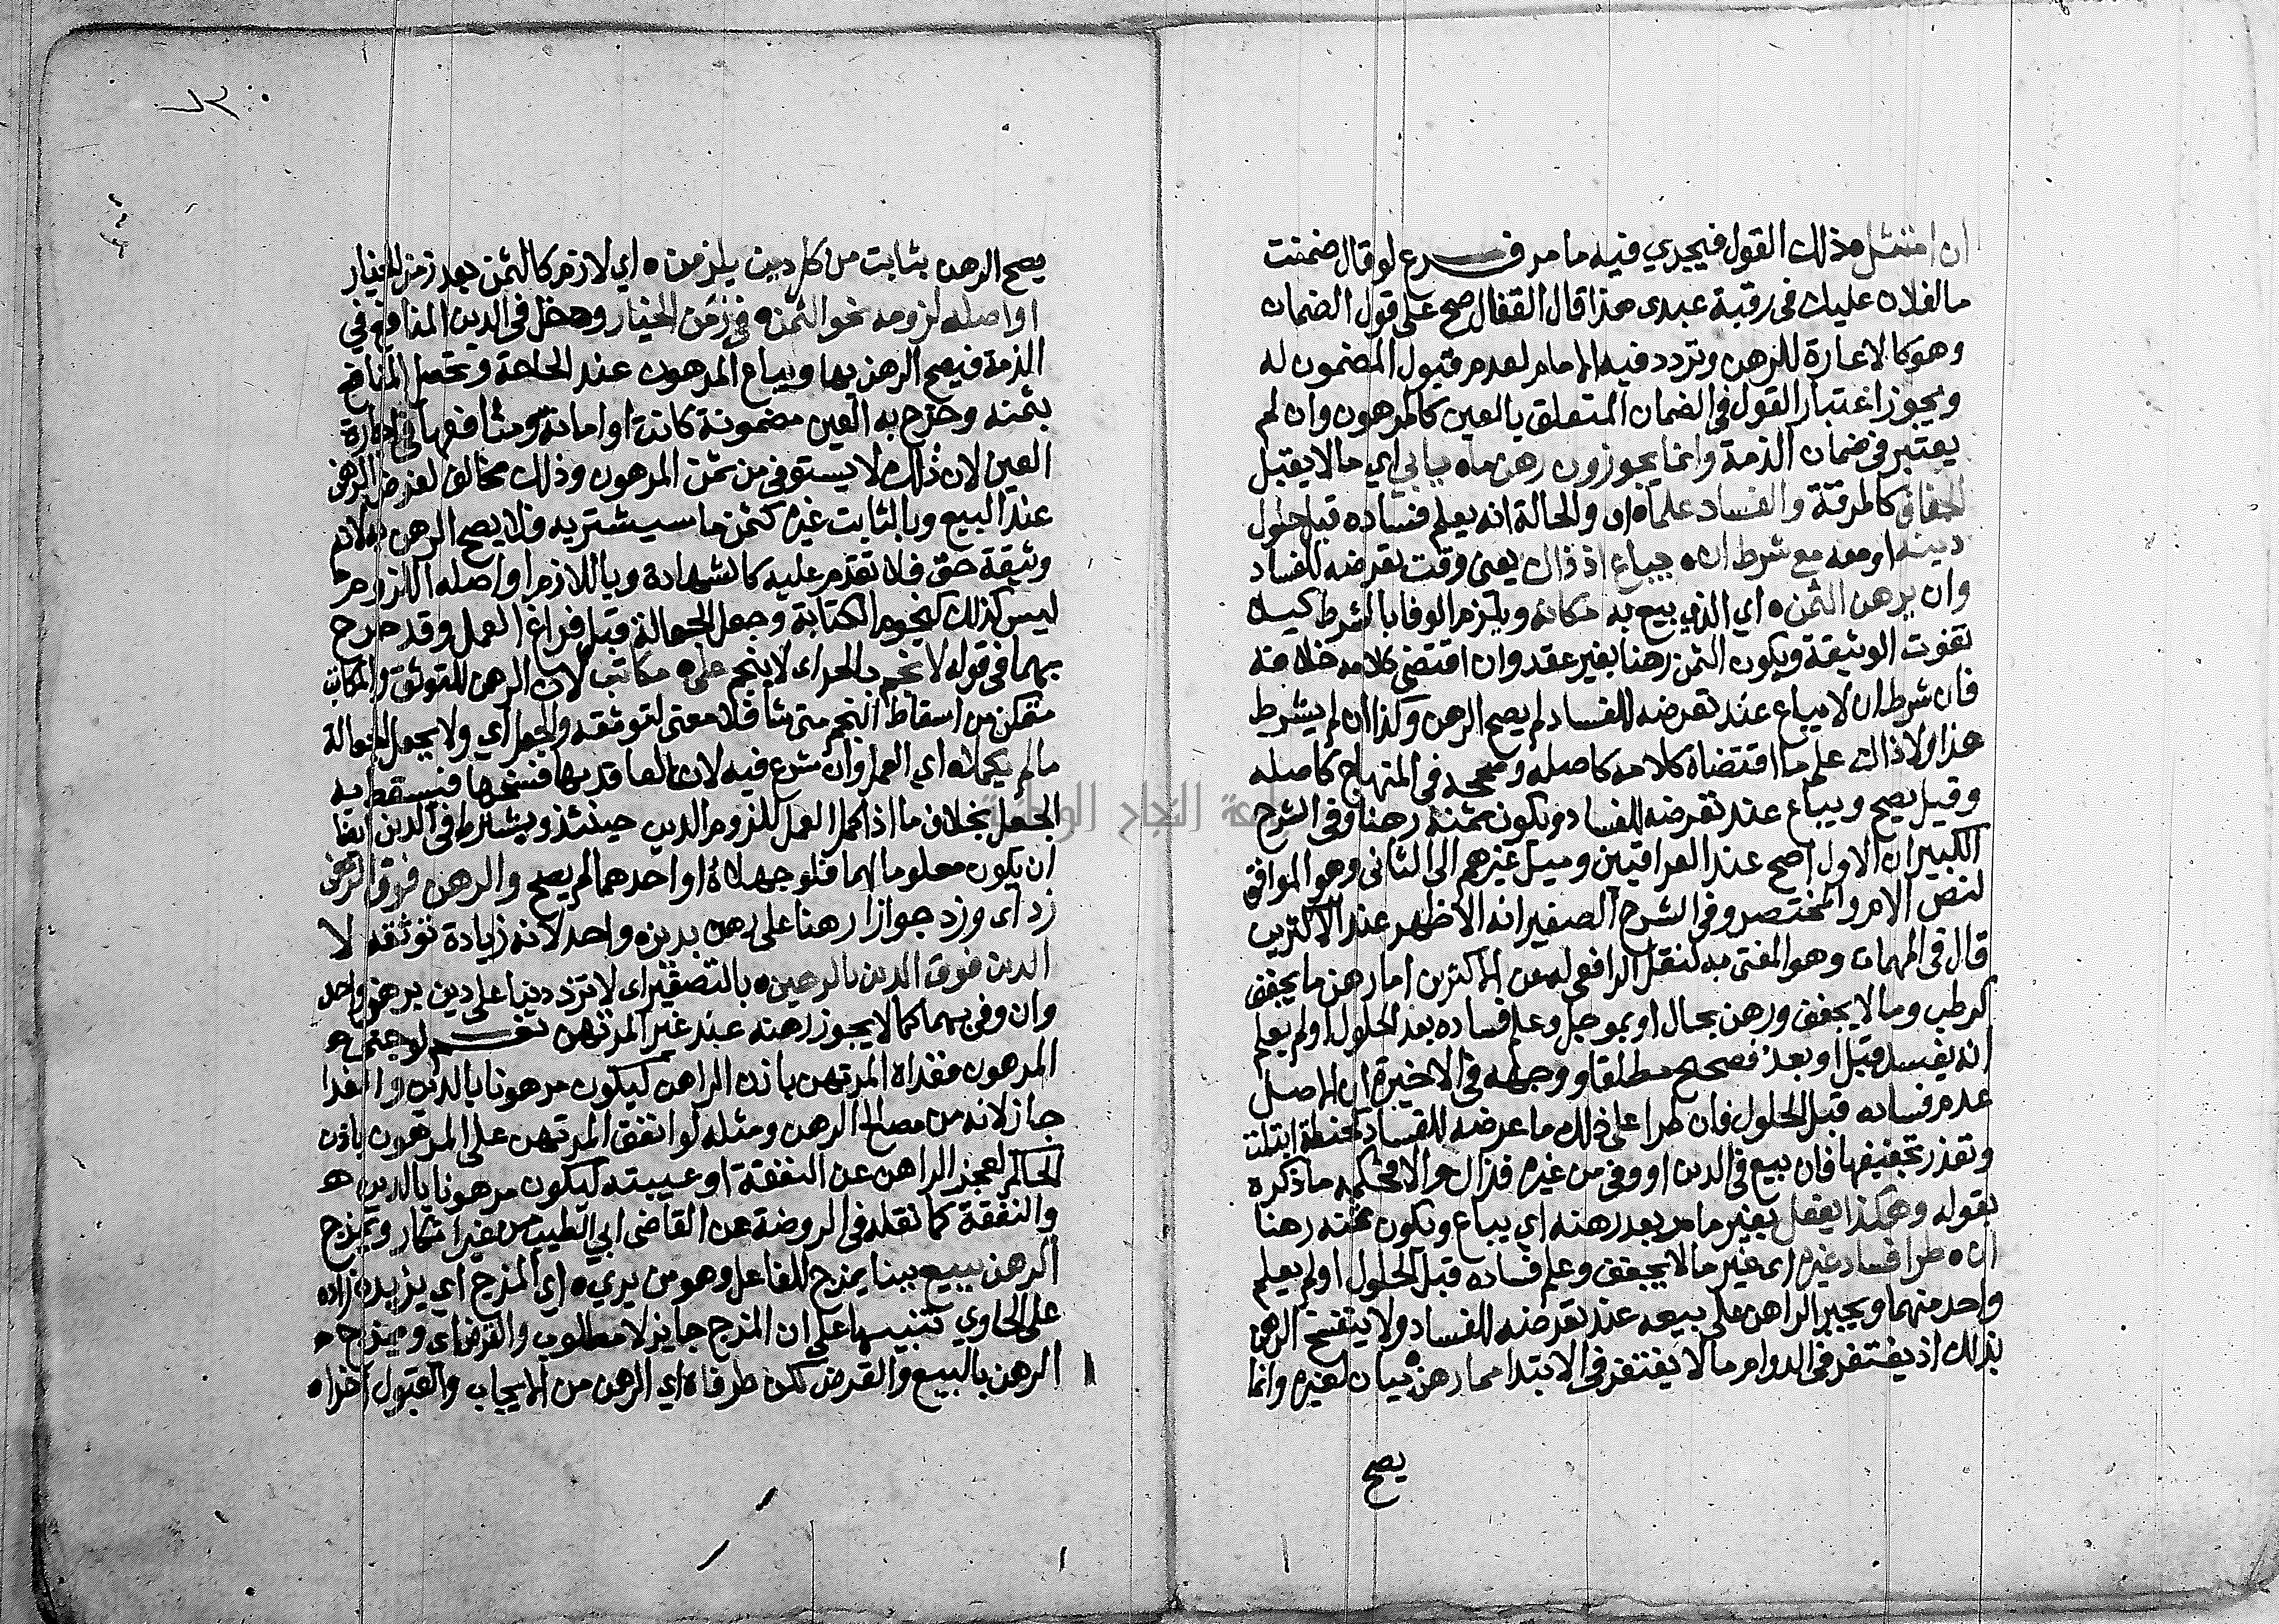 ان امتثل ذلك القول فيجري فيه ما مر فرع لو قال ضمنت
ما لفلان عليك في رقبة عبدي هذا قال القفال صح على قول الضمان
وهو كالاعارة للرهن وتردد فيه الامام لعدم قبول المضمون له
ويجوز اعتبار القول في الضمان المتعلق بالعين كالمرهون وان لم
يعتبر في ضمان الذمة وانما يجوزون رهن ما ه يابي اي ما لا يقبل
الجفاف كالمرقة والفساد علما ه اي والحالة انه يعلم فساده قبل حلول
دينه او معه مع شرط ان ه يباع اذ ذاك يعني وقت تعرضه للفساد
وان يرهن الثمن ه اي الذي بيع به مكانه ويلتزم الوفا بالشرط كيلا
تفوت الوثيقة ويكون الثمن رهنا بغير عقد وان اقتضى كلامه خلافه
فان شرط ان لا يباع عند تعرضه للفساد لم يصح الرهن وكذا ان لم يشرط
هذا ولا ذاك على ما اقتضاه كلامه كاصله وصححه في المنهاج كاصله
وقيل يصح ويباع عند تعرضه للفساد ويكون ثمنه رهنا وفي الشرح
الكبير ان الاول اصح عند العراقيين وميل غيرهم الى الثاني وهو الموافق
لنص الام والمختصر وفي الشرح الصغير انه الاظهر عند الاكثرين
قال في المهمات وهو المفتى به لنقل الرافعي له عن الاكثرين اما رهن ما يجفف
كرطب وما لا يجفف ورهن بحال او بموجل وعلم فساده بعد الحلول او لم يعلم
انه يفسد قبل او بعد فصحيح مطلقا ووجهه في الاخيرة ان الاصل
عدم فساده قبل الحلول فان طرا على ذلك ما عرضه للفساد كحنطة ابتلت
وتعذر تجفيفها فان بيع في الدين او وفي من غيره فذاك والا فحكمه ما ذكره
بقوله وهكذا يفعل بغير ما مر بعد رهنه اي يباع ويكون ثمنه رهنا
ان ه طرا فساد غيره اي غير ما لا يجفف وعلم فساده قبل الحلول او لم يعلم
واحد منهما ويجبر الراهن على بيعه عند تعرضه للفساد ولا ينفسخ الرهن
بذلك اذ يغتفر في الدوام ما لا يغتفر في الابتدا مما رهن بيان لغيره وانما
يصح
٧٣
يصح الرهن بثابت من كل دين يلزمن ه اي لازم كالثمن بعد زمن الخيار
او اصله لزومه نحو الثمن ه في زمن الخيار ودخل في الدين المنافع في
الذمة فيصح الرهن بها ويباع المرهون عند الحاجة وتحصل المنافع
بثمنه وخرج به العين مضمونة كانت او امانة ومنافعها في اجارة
العين لان ذلك لا يستوفى من ثمن المرهون وذلك مخالف لغرض الرهن
عند البيع وبالثابت غيره كثمن ما سيشتريه فلا يصح الرهن به لانه
وثيقة حق فلا تقدم عليه كالشهادة وباللازم او اصله اللزوم ما
ليس كذلك كنجوم الكتابة وجعل الجعالة قبل فراغ العمل وقد صرح
بهما في قوله لا نجم بالجر اي لا بنجم على ه مكاتب لان الرهن للتوثق والمكاتب
متمكن من اسقاط النجم متى شا فلا معنى لتوثقه والجعل اي ولا بجعل الجعالة
ما لم يكملاه اي العمل وان شرع فيه لان للعاقد بها فسخها فيسقط به
الجعل بخلاف ما اذا كمل العمل للزوم الدين حينئذ ويشترط في الدين ايضا
ان يكون معلوما لهما فلو جهلاه او احدهما لم يصح والرهن فوق الرهن
زد اي وزد جوازا رهنا على رهن بدين ه واحد لانه زيادة توثقه لا
الدين فوق الدين بالرهين ه بالتصغير اي لا تزد دينا على دين برهن واحد
وان وفى بهما كما لا يجوز رهنه عند غير المرتهن نعم لو جنى ه
المرهون ففداه المرتهن باذن الراهن ليكون مرهونا بالدين والفدا
جاز لانه من مصالح الرهن ومثله لو انفق المرتهن على المرهون باذن
الحاكم لعجز الراهن عن النفقة او غيبته ليكون مرهونا بالدين ه
والنفقة كما نقله في الروضة عن القاضي ابي الطيب من غير انكار ويمزج
الرهن ببيع ببنا يمزج للفاعل وهو من يري ه اي المزج اي يزيده زاده
على الحاوي تنبيها على ان المزج جايز لا مطلوب والقرض اي ويمزج ه
الرهن بالبيع والقرض لكن طرفاه اي الرهن من الايجاب والقبول اخراه